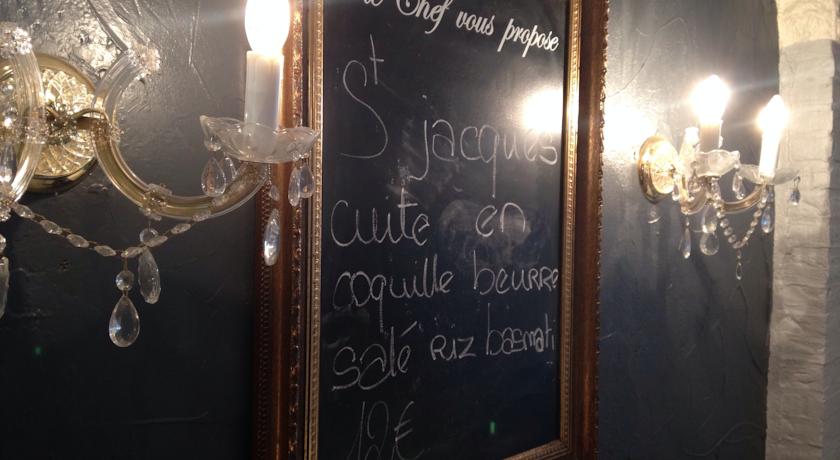 Chef vous propose
St jacques
cuite en
coquille beurre
salé riz basmati
12€